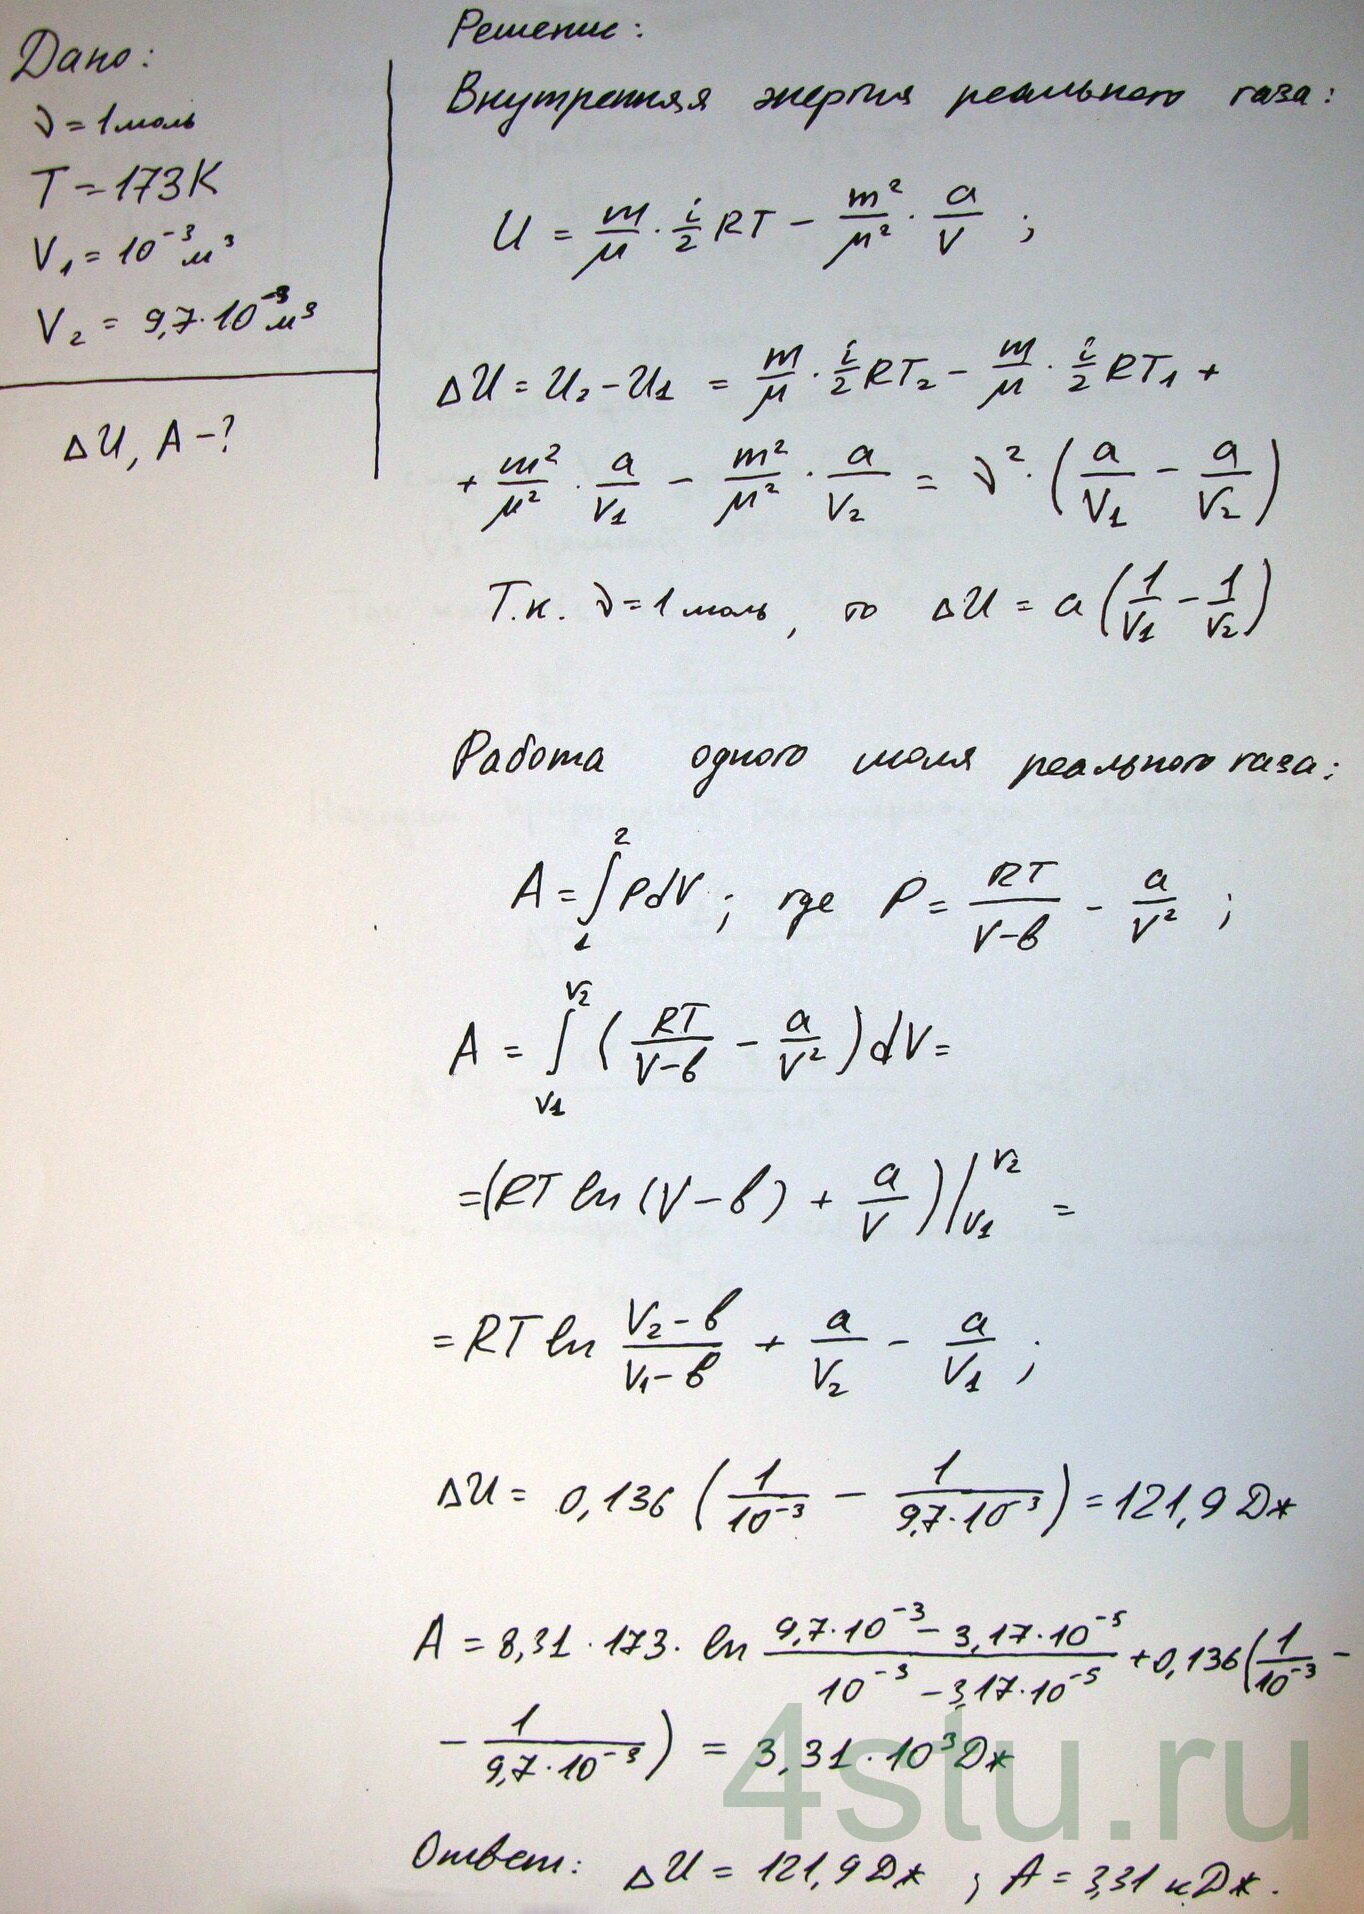 Дано:
ν = 1 моль
T = 173 K
V₁ = 10⁻³ м³
V₂ = 9,7·10⁻³ м³
ΔU, A - ?
Решение:
Внутренняя энергия реального газа:
U = m/μ · i/2 RT - m²/μ² · a/V ;
ΔU = U₂ - U₁ = m/μ · i/2 RT₂ - m/μ · i/2 RT₁ +
+ m²/μ² · a/V₁ - m²/μ² · a/V₂ = ν² · (a/V₁ - a/V₂)
Т.к. ν = 1 моль, то ΔU = a (1/V₁ - 1/V₂)
Работа одного моля реального газа:
A = ∫₁² PdV ; где P = RT/(V-в) - a/V² ;
A = ∫_{V₁}^{V₂} (RT/(V-в) - a/V²) dV =
= (RT ln (V-в) + a/V) |_{V₁}^{V₂} =
= RT ln (V₂-в)/(V₁-в) + a/V₂ - a/V₁ ;
ΔU = 0,136 (1/10⁻³ - 1/(9,7·10⁻³)) = 121,9 Дж
A = 8,31 · 173 · ln (9,7·10⁻³ - 3,17·10⁻⁵)/(10⁻³ - 3,17·10⁻⁵) + 0,136 (1/10⁻³ -
- 1/(9,7·10⁻³)) = 3,31·10³ Дж
Ответ: ΔU = 121,9 Дж ; A = 3,31 кДж.
4stu.ru